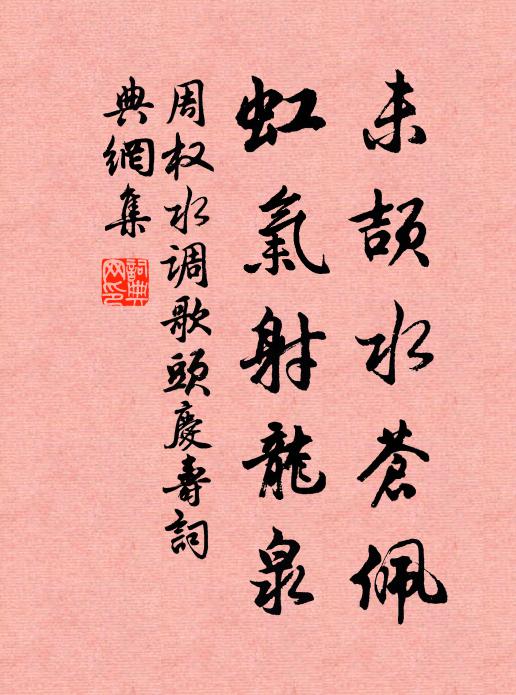 未頡水蒼佩
虹氣射龍泉
周权水调歌頭慶壽詞
典網集
詞典网印